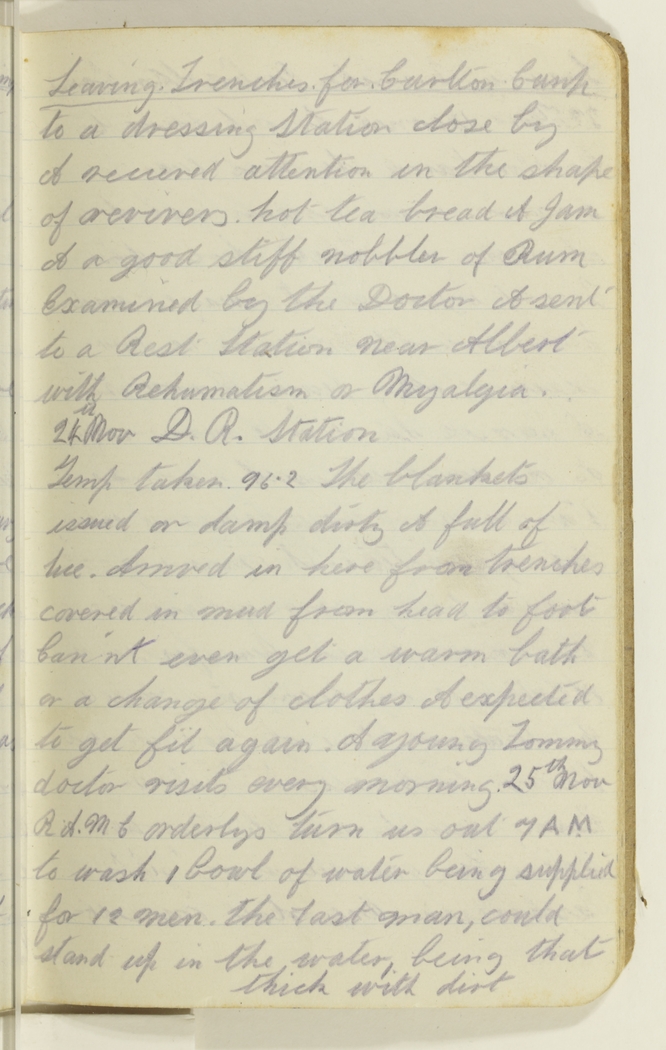 Leaving. Trenches. for. Carlton Camp
to a dressing Station close by
& recieved attention in the shape
of revivers. hot tea bread & Jam
& a good stiff nobbler of Rum
Examined by the Doctor & sent
to a Rest Station near Albert
with Rehumatism or Myalgia.
24th Nov D. R. Station
Temp taken. 96.2 The blankets
issued or damp dirty & full of
lice. Arrived in here from trenches
covered in mud from head to foot
Can'nt even get a warm bath
or a change of clothes & expected
to get fit again. A young Tommy
doctor visits every morning. 25th Nov
R.A.M C orderlys turn us out 7 A M
to wash 1 bowl of water being supplied
for 12 men. the last man, could
stand up in the water, being that
thick with dirt